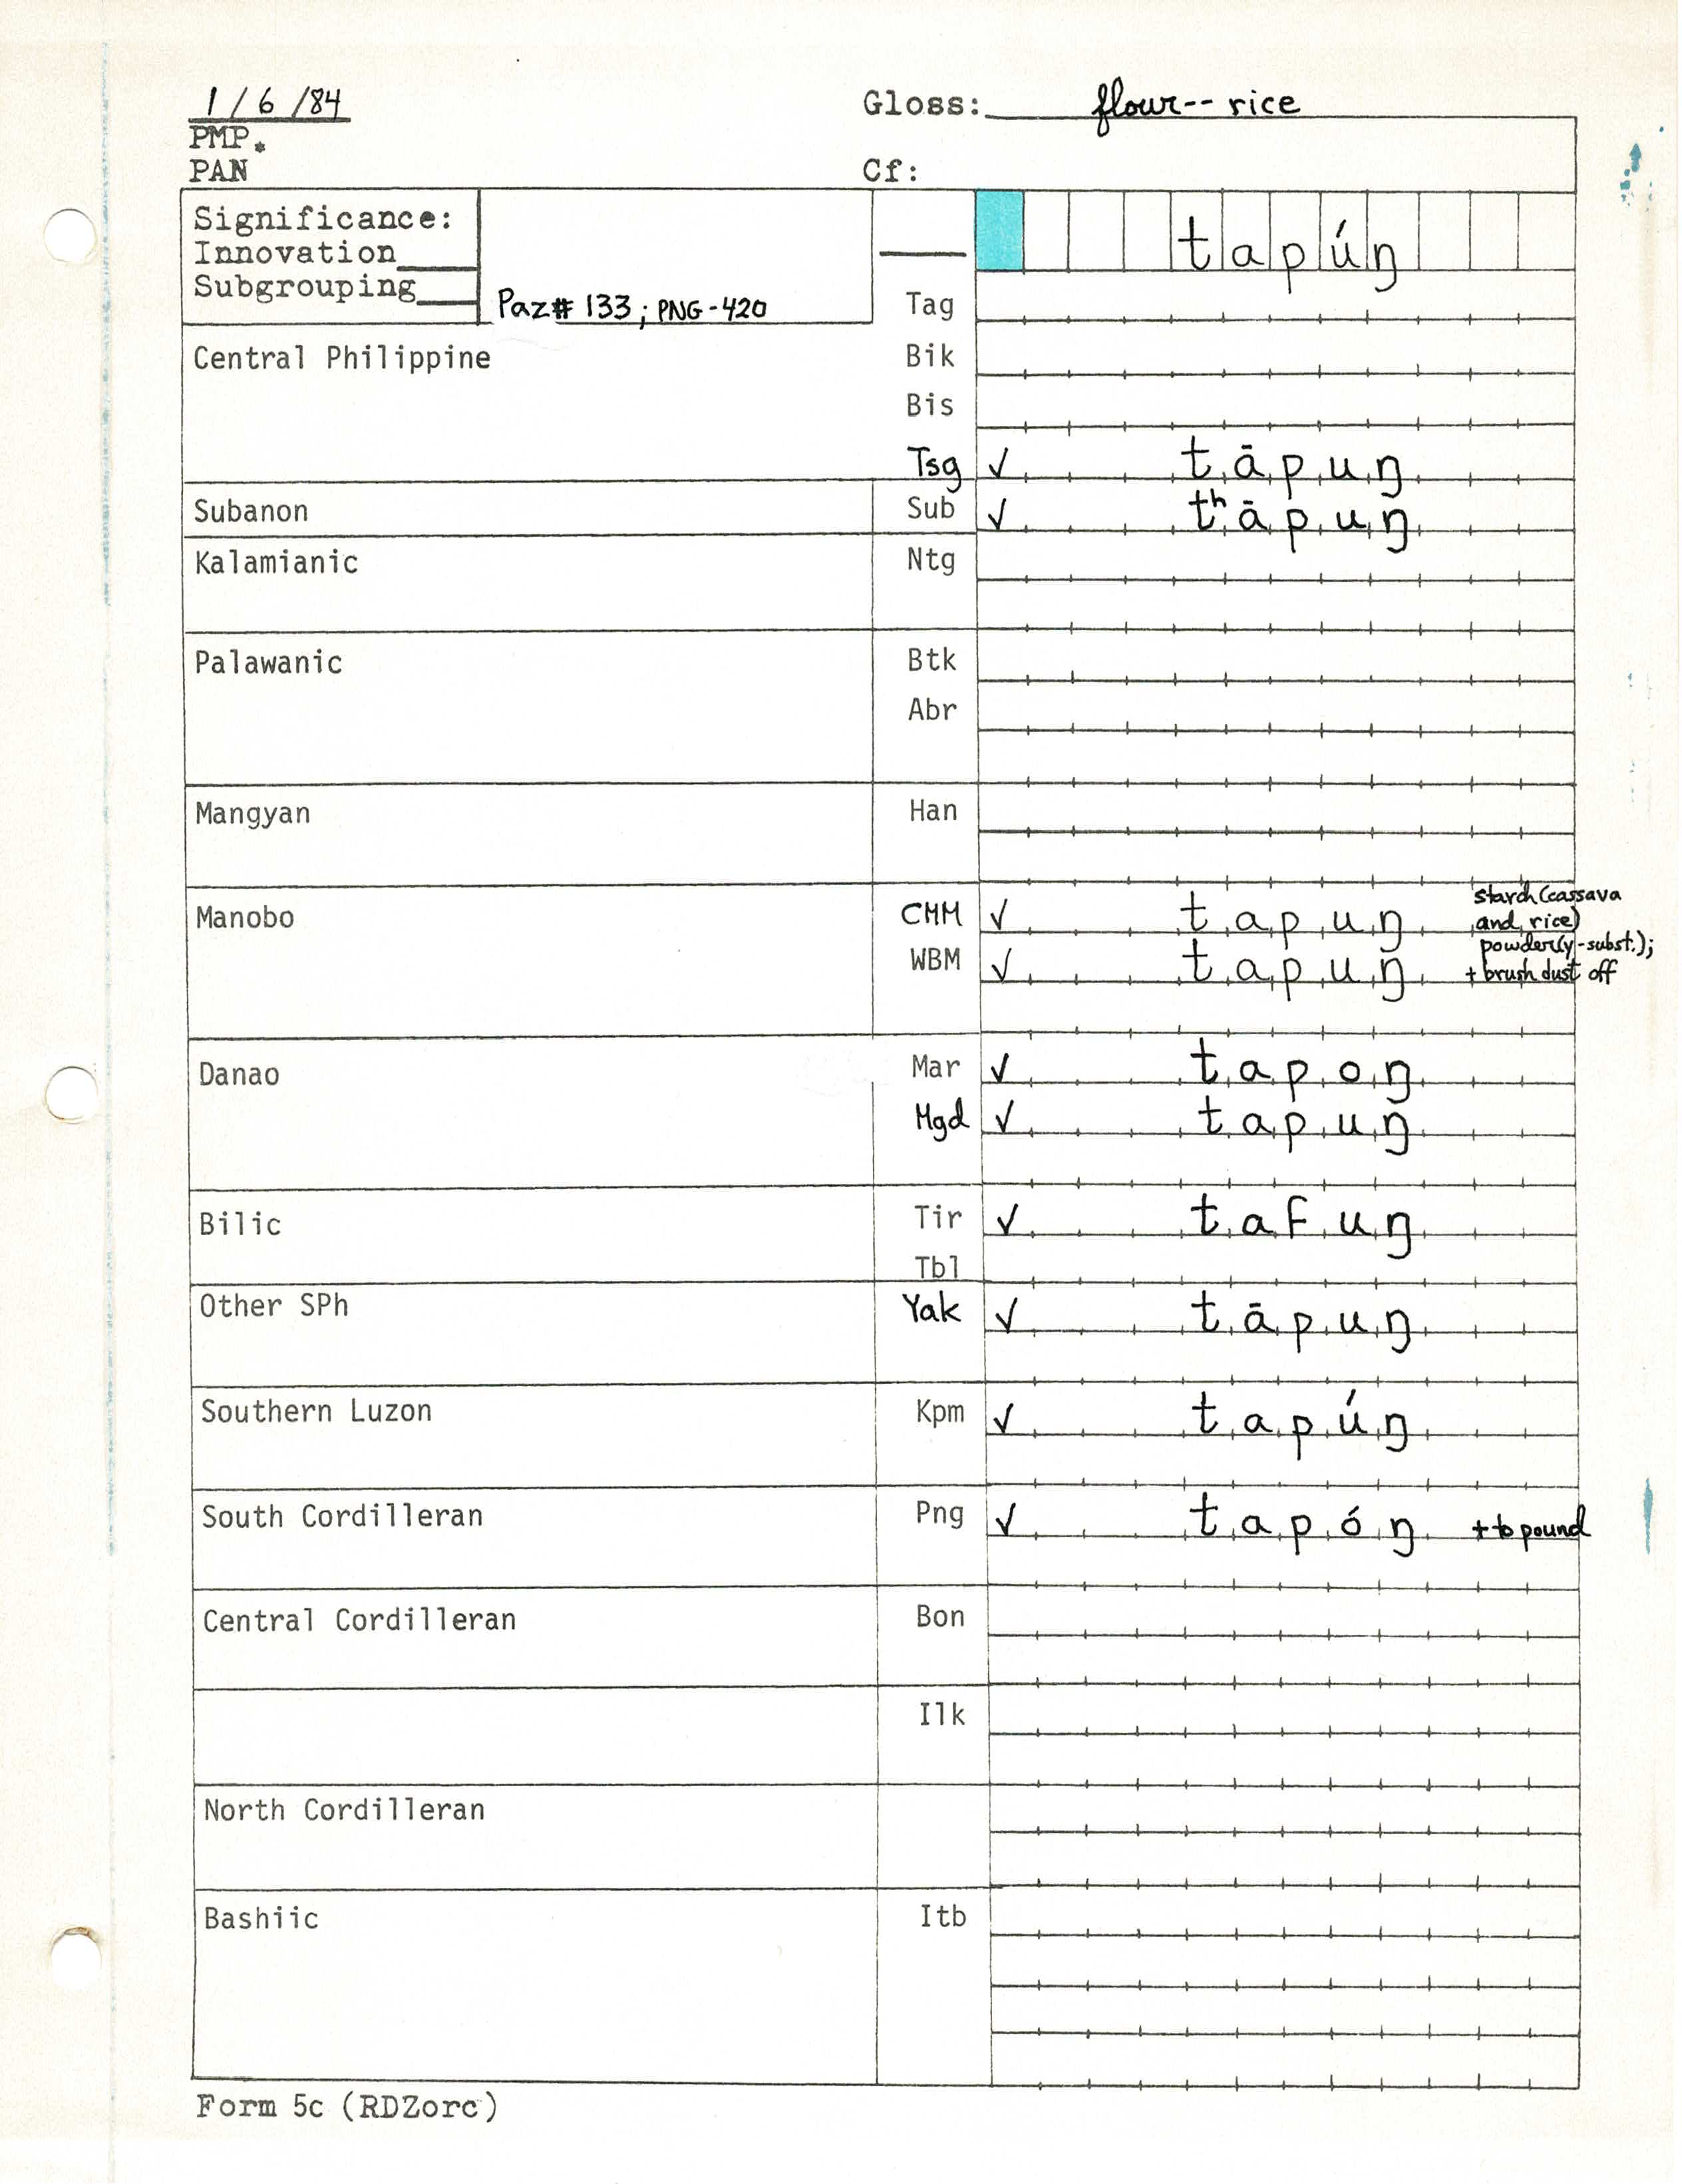 1/6/84 Gloss: flour--rice
PMP.
PAN Cf:
Significance:
Innovation____
Subgrouping____ Paz# 133; PNG-420
____ tapúŋ
Tag
Central Philippine Bik
Bis
Tsg ✓ tāpuŋ
Subanon Sub ✓ tʰāpuŋ
Kalamianic Ntg
Palawanic Btk
Abr
Mangyan Han
Manobo CMM ✓ tapuŋ starch (cassava
and rice)
WBM ✓ tapuŋ powder(y-subst.);
+ brush dust off
Danao Mar ✓ tapoŋ
Mgd ✓ tapuŋ
Bilic Tir ✓ tafuŋ
Tbl
Other SPh Yak ✓ tāpuŋ
Southern Luzon Kpm ✓ tapúŋ
South Cordilleran Png ✓ tapóŋ + to pound
Central Cordilleran Bon
Ilk
North Cordilleran
Bashiic Itb
Form 5c (RDZorc)